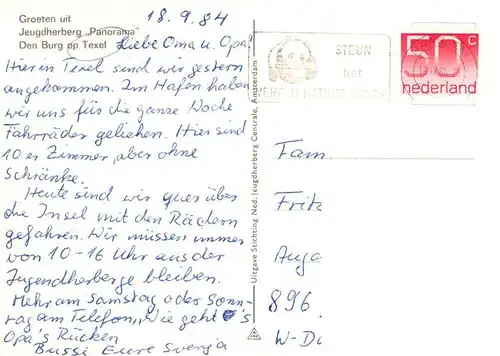 Groeten uit
Jeugdherberg „Panorama"
Den Burg op Texel
18.9.84
Liebe Oma u. Opa!
Hier in Texel sind wir gestern
angekommen. Im Hafen haben
wir uns für die ganze Woche
Fahrräder geliehen. Hier sind
10er Zimmer, aber ohne
Schränke.
Heute sind wir quer über
die Insel mit den Rädern
gefahren. Wir müssen immer
von 10-16 Uhr aus der
Jugendherberge bleiben.
Mehr am Samstag oder Sonn-
tag am Telefon, „Wie geht's
Opa's Rücken
Bussi Eure Svenja
Uitgave Stichting Ned. Jeugdherberg Centrale, Amsterdam
STEUN
het
50 c
nederland
Fam.
Fritz
Auga
896.
W-De